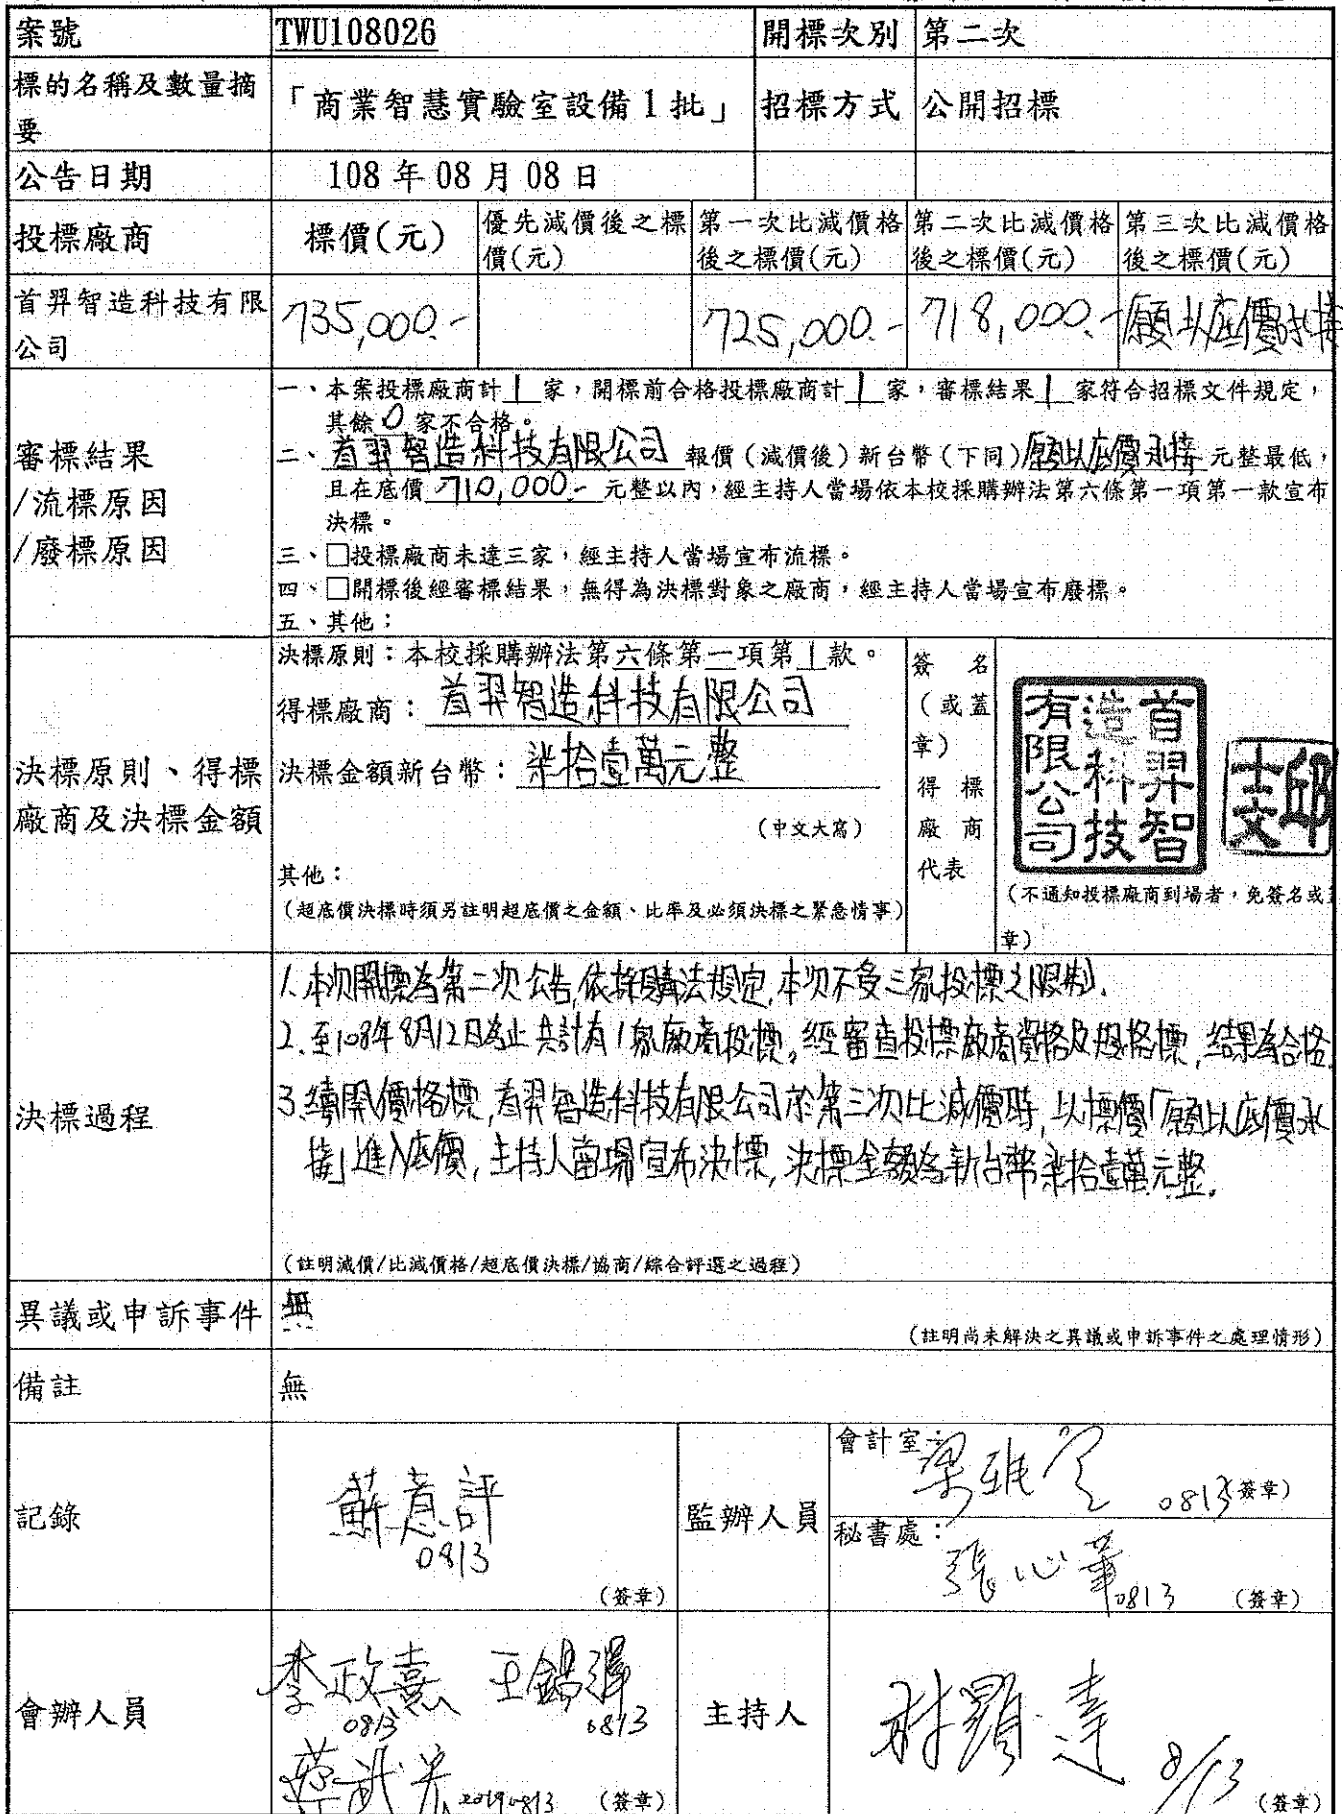 案號 TWU108026 開標次別 第二次
標的名稱及數量摘要 「商業智慧實驗室設備1批」 招標方式 公開招標
公告日期 108 年 08 月 08 日
投標廠商 標價(元) 優先減價後之標價(元) 第一次比減價格後之標價(元) 第二次比減價格後之標價(元) 第三次比減價格後之標價(元)
首羿智造科技有限公司 735,000.- 725,000.- 718,000.- 願以底價承接
審標結果
/流標原因
/廢標原因
一、本案投標廠商計 1 家,開標前合格投標廠商計 1 家,審標結果 1 家符合招標文件規定,
其餘 0 家不合格。
二、首羿智造科技有限公司 報價(減價後)新台幣(下同)願以底價承接 元整最低,
且在底價 710,000.- 元整以內,經主持人當場依本校採購辦法第六條第一項第一款宣布
決標。
三、□投標廠商未達三家,經主持人當場宣布流標。
四、□開標後經審標結果,無得為決標對象之廠商,經主持人當場宣布廢標。
五、其他:
決標原則、得標
廠商及決標金額
決標原則:本校採購辦法第六條第一項第1款。
得標廠商:首羿智造科技有限公司
決標金額新台幣:柒拾壹萬元整
(中文大寫)
其他:
(超底價決標時須另註明超底價之金額、比率及必須決標之緊急情事)
簽名
(或蓋
章)
得標
廠商
代表
首羿智
造科技
有限公司
邱
士文
(不通知投標廠商到場者,免簽名或蓋
章)
決標過程
1.本次開標為第二次公告,依採購法規定,本次不受三家投標之限制.
2.至108年8月12日為止共計有1家廠商投標。經審查投標廠商資格及規格標,結果為合格.
3.續開價格標,首羿智造科技有限公司於第三次比減價時,以標價「願以底價承
接」進入底價,主持人當場宣布決標,決標金額為新台幣柒拾壹萬元整.
(註明減價/比減價格/超底價決標/協商/綜合評選之過程)
異議或申訴事件 無
(註明尚未解決之異議或申訴事件之處理情形)
備註 無
記錄
蘇意評
0813
(簽章)
監辦人員
會計室:
0813
(簽章)
秘書處:
張心華
0813
(簽章)
會辦人員
李政熹
0813
王錫澤
0813
20190813
(簽章)
主持人
林顯達
8/13
(簽章)